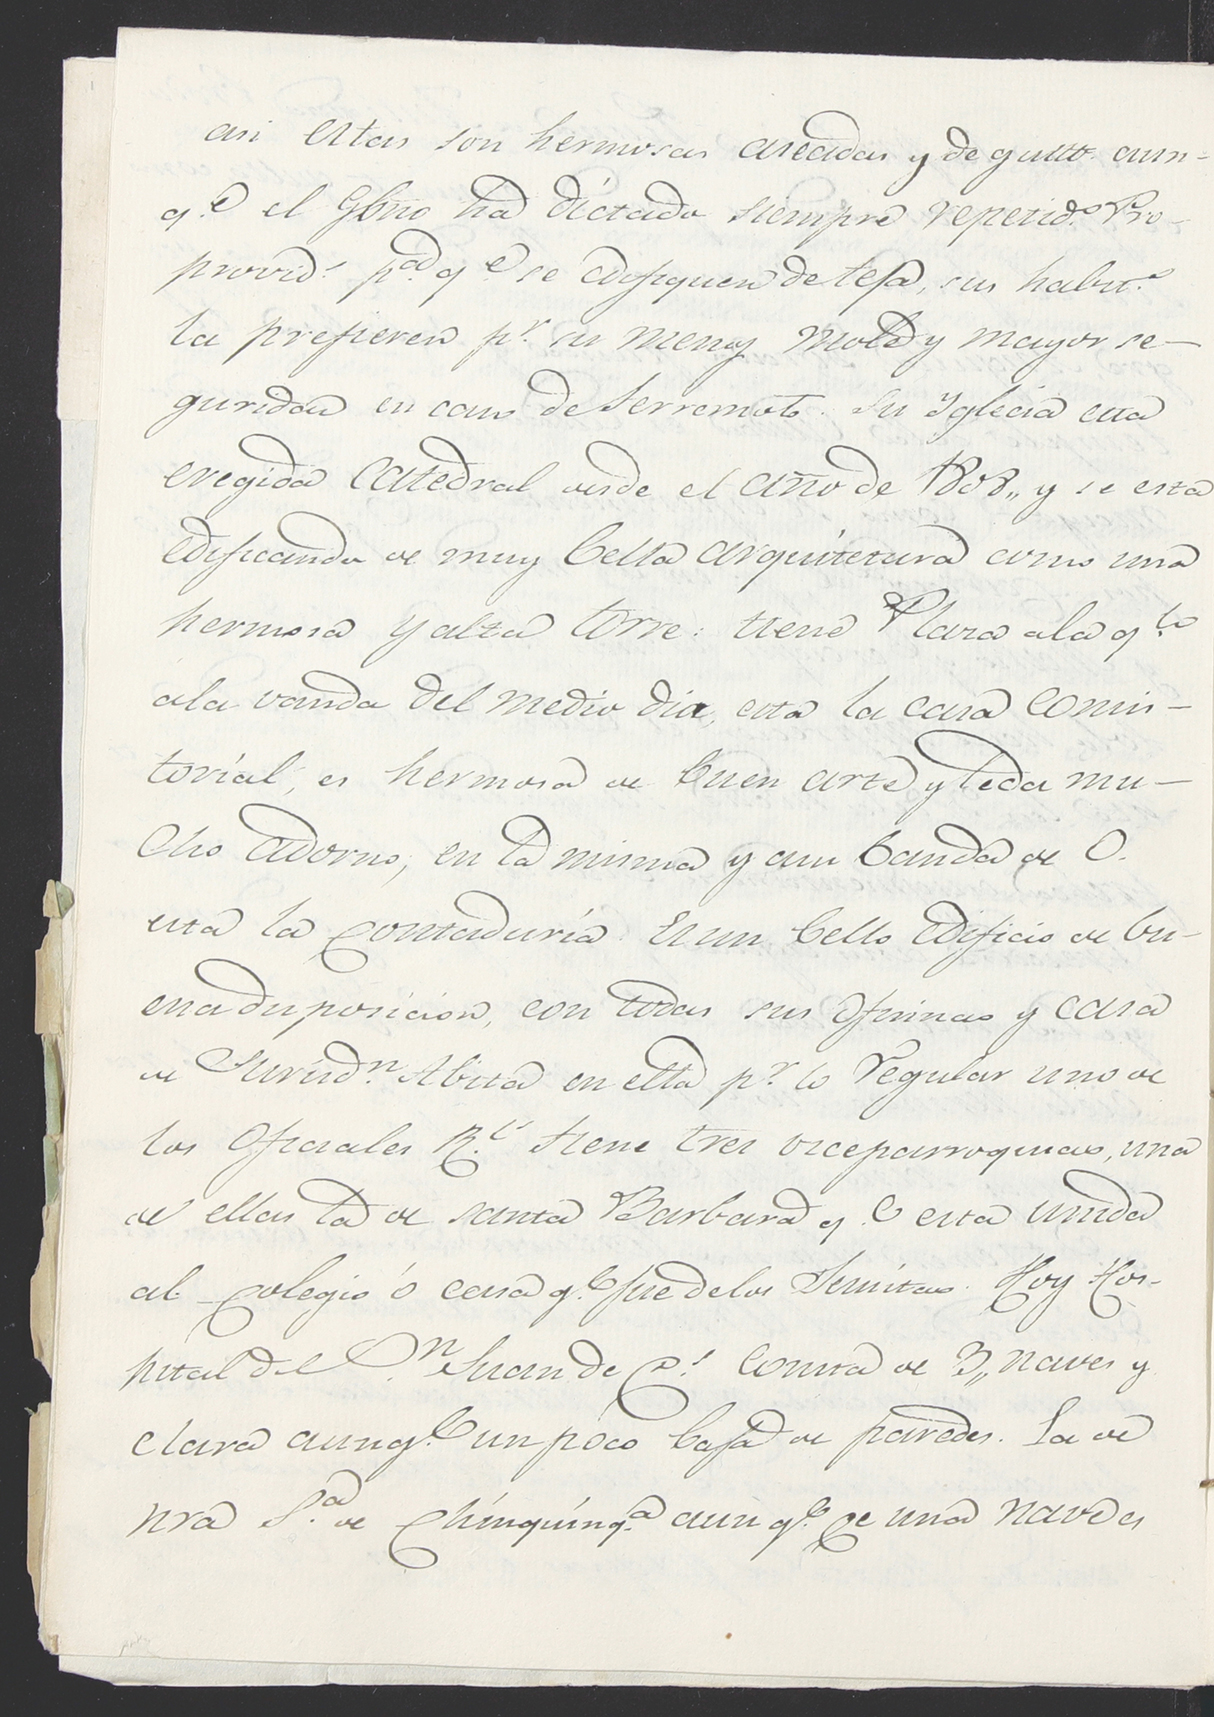 asi estas son hermosas aseadas y de gusto. aun-
q.e el Gbno ha dictado siempre repetid.s Pro-
provid.s p.a q.e se edifiquen de teja, sus habit.s
la prefieren p.r su menos mole y mayor se-
guridad en caso de terremoto. Su Yglecia esta
eregida Catedral desde el año de 1808,, y se esta
edificando de muy bella arquitetura como una
hermosa y alta torre: tiene Plaza a la q.
a la vanda del medio dia, esta la casa Consis-
torial, es hermosa de buen arte y le da mu-
cho adorno; en la misma y a su banda de O.
esta la Contaduria. Es un bello edificio de bu-
ena disposicion, con todas sus ofisinas y casa
de Jurisd.n Abita en ella p.r lo regular uno de
los Oficiales R.s tiene tres viceparroquias, una
de ellas la de santa Barbara q.e esta unida
al Colegio ó casa q.e fue de los Jesuitas. Hoy Hos-
pital de S.n Juan de D.s consta de 3,, naves y
clara aunq.e un poco baja de paredes. La de
nra S.a de Chiquinq.a aunq.e de una nave es